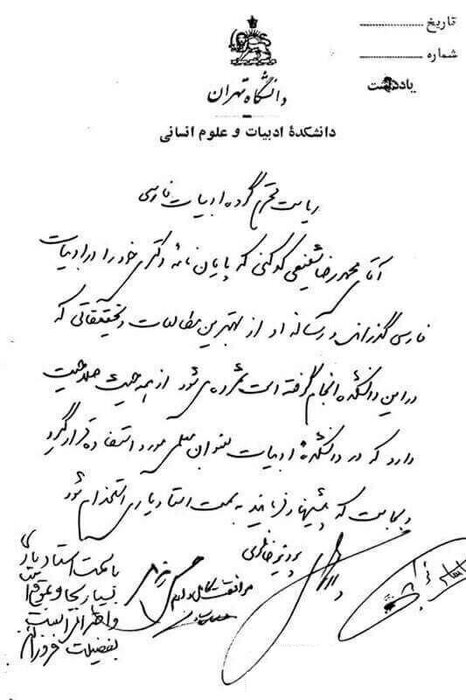 تاریخ
شماره
یادداشت
دانشگاه تهران
دانشکدهٔ ادبیات و علوم انسانی
ریاست محترم گروه ادبیات فارسی
آقای محمدرضا شفیعی کدکنی که پایان نامه دکتری خود را در ادبیات
فارسی گذرانده و رساله او از بهترین مطالعات و تحقیقاتی که
در این دانشکده انجام گرفته است شمرده می شود از همه حیث صلاحیت
دارد که در دانشکدهٔ ادبیات بعنوان معلمی مورد استفاده قرار گیرد
و بجاست که پیشنهاد فرمایند به سمت استادیاری استخدام شود
پرویز خانلری
با سمت استادیاری
بسیار بجا و بموقع است
و احترامی است
بفضیلت فروزانفر
موافقت کامل دارم